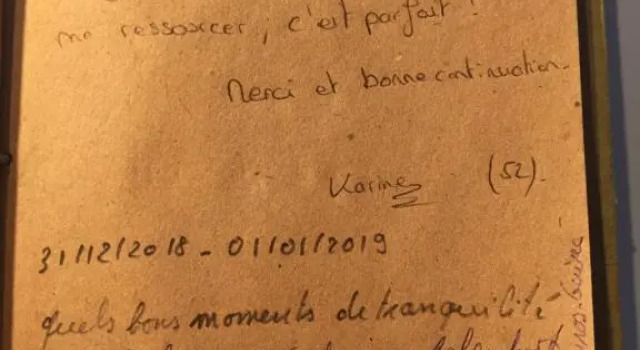 me ressourcer, c'est parfait !
Merci et bonne continuation.
Karine (52).
31/12/2018 - 01/01/2019
quels bons moments de tranquilité